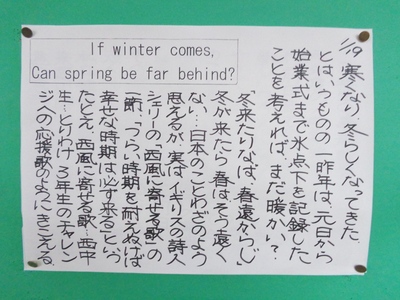 If winter comes,
Can spring be far behind?
1/19 寒くなり、冬らしくなってきた。
とはいうものの一昨年は、元日から
始業式まで氷点下を記録した
ことを考えれば、まだ暖かい?
「冬来たりなば、春遠からじ」
冬が来たら春はそう遠く
ない…日本のことわざのよう
に思えるが、実はイギリスの詩人
シェリーの「西風に寄せる歌」の
一節、「つらい時期を耐えぬけば
幸せな時期は必ず来る」という
たとえ。西風に寄せる歌…西中
生…とりわけ3年生のチャレン
ジへの応援歌のようにきこえる。